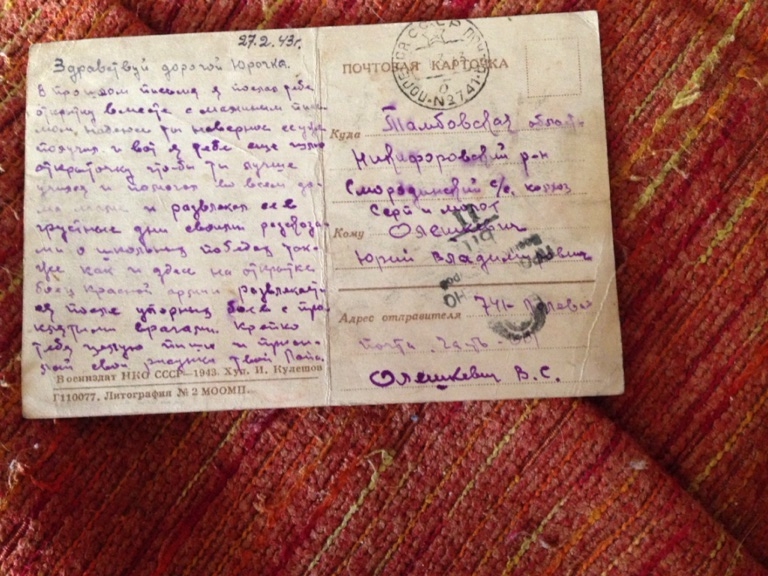 27.2.43г.
Здравствуй дорогой Юрочка.
В прошлом письме я послал тебе
открытку вместе с маминым пись
мом, надеюсь ты наверное ее уже
получил и вот я тебе еще шлю
открыточку что-бы ты лучше
учился и помогал во всем до-
ма маме и развлекал ее в
грустные дни своими рассказа-
ми о школьных победах так-
же как и дяде на открытке
боец Красной армии развлекает
ся после упорных боев с про
клятыми врагами. Крепко
тебя целую пиши и присы-
лай свои твой Папа.
Воениздат НКО СССР—1943. Худ. И. Кулешов
Г110077. Литография № 2 МООМП.
ПОЧТОВАЯ КАРТОЧКА
Куда Тамбовская область
Никифоровский р-он
Смородинский с/с, колхоз
Серп и молот
Кому Олешкевич
Юрий Владимирович
Адрес отправителя 741 Полевая
почта часть
Олешкевич В.С.